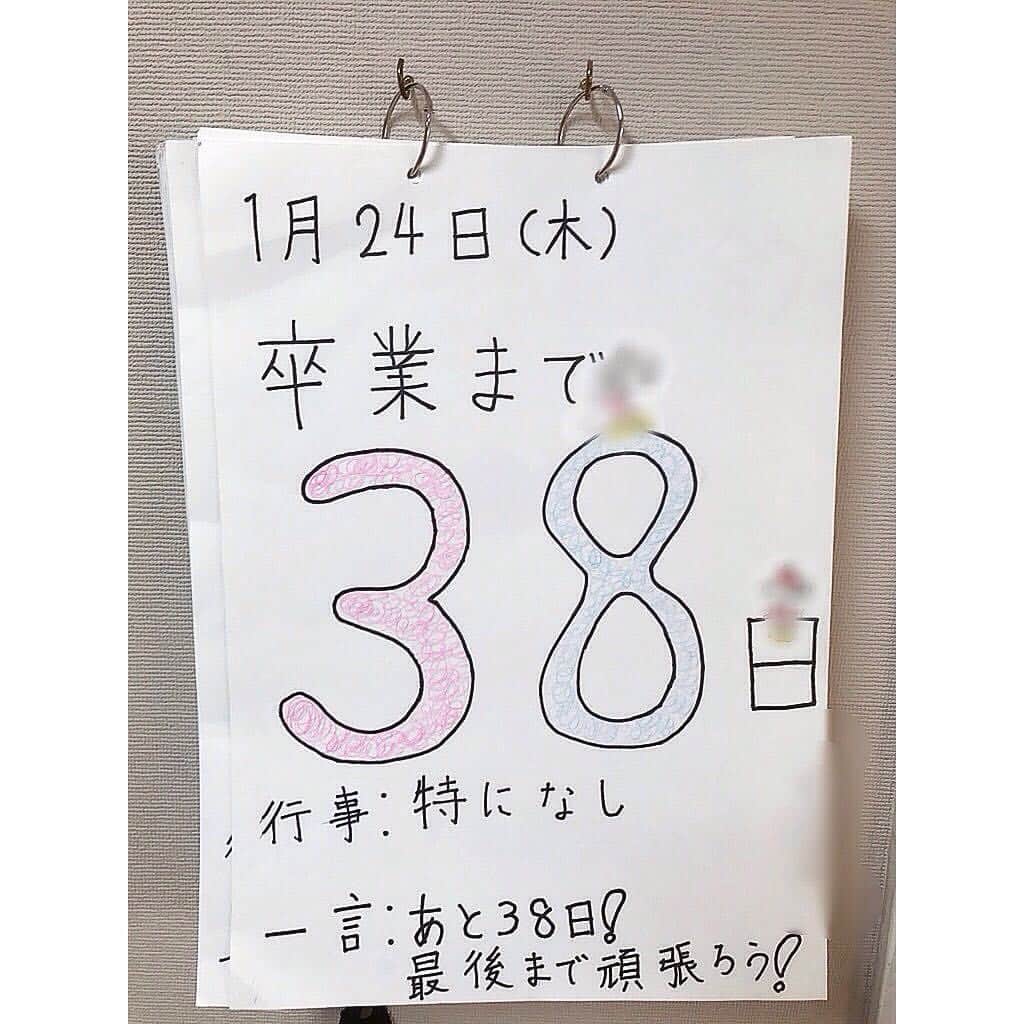 1月24日(木)
卒業まで
38日
行事:特になし
一言:あと38日!
最後まで頑張ろう!